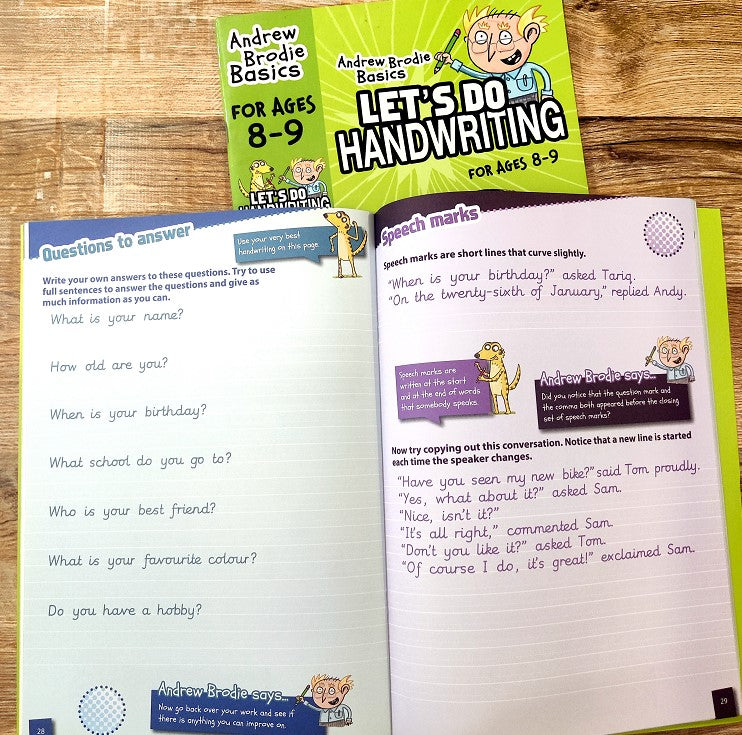 Andrew
Brodie
Basics
FOR AGES
8-9
LET'S DO
HANDWRITING
Andrew Brodie
Basics
LET'S DO
HANDWRITING
FOR AGES 8-9
Questions to answer
Use your very best
handwriting on this page.
Write your own answers to these questions. Try to use
full sentences to answer the questions and give as
much information as you can.
What is your name?
How old are you?
When is your birthday?
What school do you go to?
Who is your best friend?
What is your favourite colour?
Do you have a hobby?
Andrew Brodie says...
Now go back over your work and see if
there is anything you can improve on.
28
Speech marks
Speech marks are short lines that curve slightly.
"When is your birthday?" asked Tariq.
"On the twenty-sixth of January," replied Andy.
Speech marks are
written at the start
and at the end of words
that somebody speaks.
Andrew Brodie says...
Did you notice that the question mark and
the comma both appeared before the closing
set of speech marks?
Now try copying out this conversation. Notice that a new line is started
each time the speaker changes.
"Have you seen my new bike?" said Tom proudly.
"Yes, what about it?" asked Sam.
"Nice, isn't it?"
"It's all right," commented Sam.
"Don't you like it?" asked Tom.
"Of course I do, it's great!" exclaimed Sam.
29